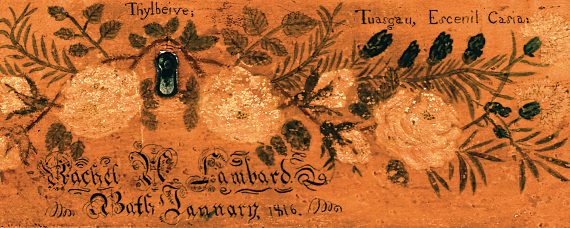 Thylbeive;
Tuasgau, Escenil Casia;
Rachel M. Lambard
Bath January, 1816.